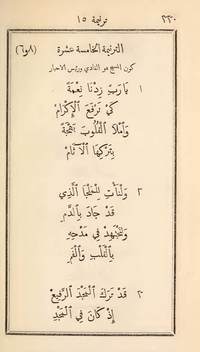 ٢٣٠ ترنيمة ١٥
الترنيمة الخامسة عشرة (٨و٦)
كون المسيح هو الفادي ورئيس الاحبار
١ يَا رَبِّ زِدْنَا نِعْمَةً
كَيْ نَرْفَعَ ٱلْإِكْرَامْ
وَٱمْلَإِ ٱلْقُلُوبَ بَهْجَةً
بِتَرْكِهَا ٱلْآثَامْ
٢ وَلْنَأْتِ لِلْمَلْجَا ٱلَّذِي
قَدْ جَادَ بِٱلدَّمِ
وَلْنَجْتَهِدْ فِي مَدْحِهِ
بِٱلْقَلْبِ وَٱلْفَمِ
٣ قَدْ تَرَكَ ٱلْمَجْدَ ٱلرَّفِيعْ
إِذْ كَانَ فِي ٱلْمَجْدِ